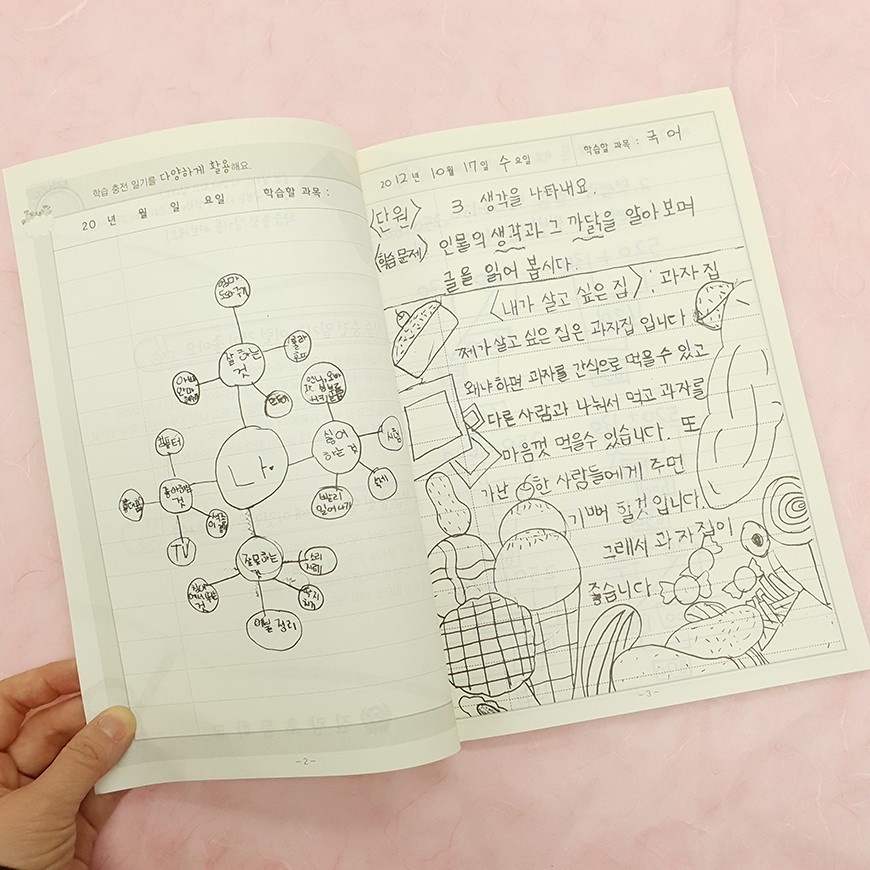 학습 충전 일기를 다양하게 활용해요.
20 년 월 일 요일 학습할 과목 :
잘 하는
것
훌라
후프
싫어
하는 것
나.
컴퓨터
좋아하는
것
TV
빨리
일어나기
숙제
잘못하는
것
이불 정리
- 2 -
2012년 10월 17일 수요일 학습할 과목 : 국어
<단원> 3. 생각을 나타내요.
<학습문제> 인물의 생각과 그 까닭을 알아 보며
글을 읽어 봅시다.
<내가 살고 싶은 집> : 과자 집
제가 살고 싶은 집은 과자집 입니다
왜냐하면 과자를 간식으로 먹을 수 있고
다른 사람과 나눠서 먹고 과자를
마음껏 먹을수 있습니다. 또
가난한 사람들에게 주면
기뻐 할것 입니다.
그래서 과자집이
좋습니다.
- 3 -